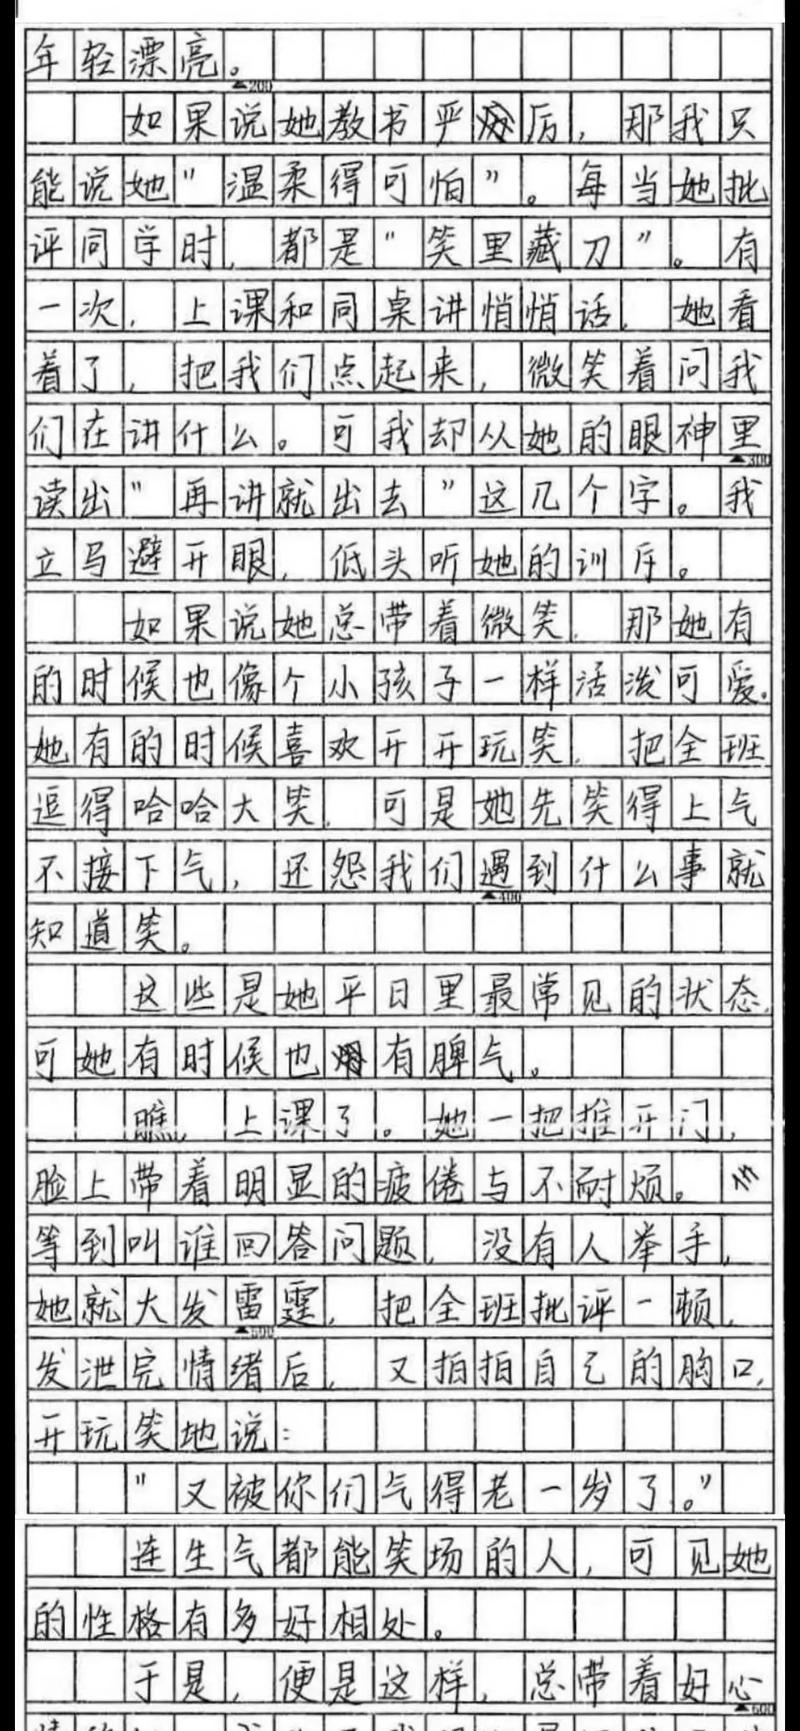 年轻漂亮。
200
如果说她教书严厉，那我只
能说她"温柔得可怕"。每当她批
评同学时，都是"笑里藏刀"。有
一次，上课和同桌讲悄悄话，她看
着了，把我们点起来，微笑着问我
们在讲什么。可我却从她的眼神里
300
读出"再讲就出去"这几个字。我
立马避开眼，低头听她的训斥。
如果说她总带着微笑，那她有
的时候也像个小孩子一样活泼可爱。
她有的时候喜欢开开玩笑，把全班
逗得哈哈大笑，可是她先笑得上气
不接下气，还怨我们遇到什么事就
400
知道笑。
这些是她平日里最常见的状态，
可她有时候也有脾气。
瞧，上课了。她一把推开门，
脸上带着明显的疲倦与不耐烦。
等到叫谁回答问题，没有人举手，
她就大发雷霆，把全班批评一顿，
500
发泄完情绪后，又拍拍自己的胸口，
开玩笑地说：
"又被你们气得老一岁了。"
连生气都能笑场的人，可见她
的性格有多好相处。
于是，便是这样，总带着好心
600